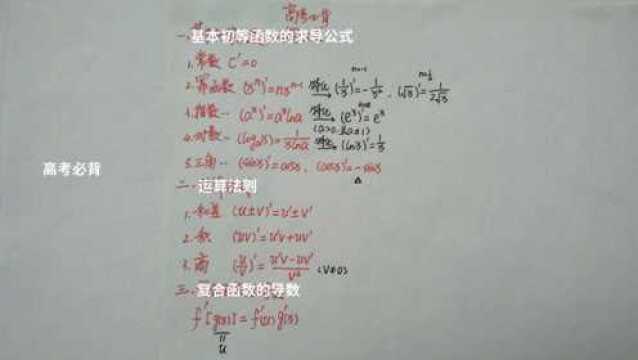 高考必背
一.基本初等函数的求导公式
1.常数 C'=0
2.幂函数 (xⁿ)'=nxⁿ⁻¹ 特化→ (1/x)'=-1/x², (√x)'=1/(2√x)
n=-1 n=1/2
3.指数-- (aˣ)'=aˣlna 特化→ (eˣ)'=eˣ
4.对数-- (logₐx)'=1/(xlna) 特化→ (lnx)'=1/x
5.三角-- (sinx)'=cosx, (cosx)'=-sinx
高考必背
二.运算法则
1.和差 (u±v)'=u'±v'
2.积 (uv)'=u'v+uv'
3.商 (u/v)'=(u'v-uv')/v² (v≠0)
三.复合函数的导数
f'[g(x)]=f'(u)g'(x)
u